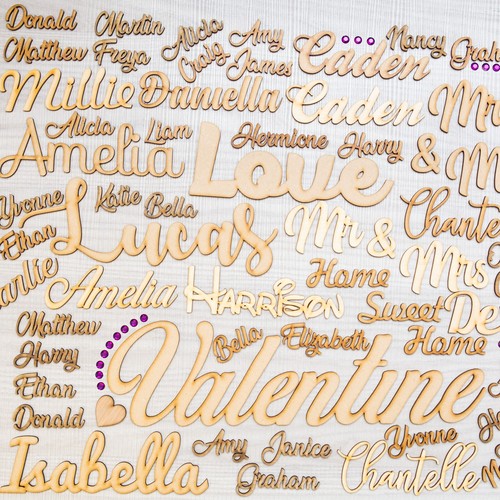 Donald Martin Alicia Amy Nancy
Matthew Freya Craig James Caden
Millie Daniella Caden
Alicia Liam Hermione Harry
Amelia Love &
Yvonne Katie Bella Mr & Chantelle
Ethan Lucas Mrs
Home
Amelia Harrison Sweet
Matthew Bella Elizabeth Home
Harry Valentine
Ethan
Donald Amy Janice Yvonne
Isabella Graham Chantelle